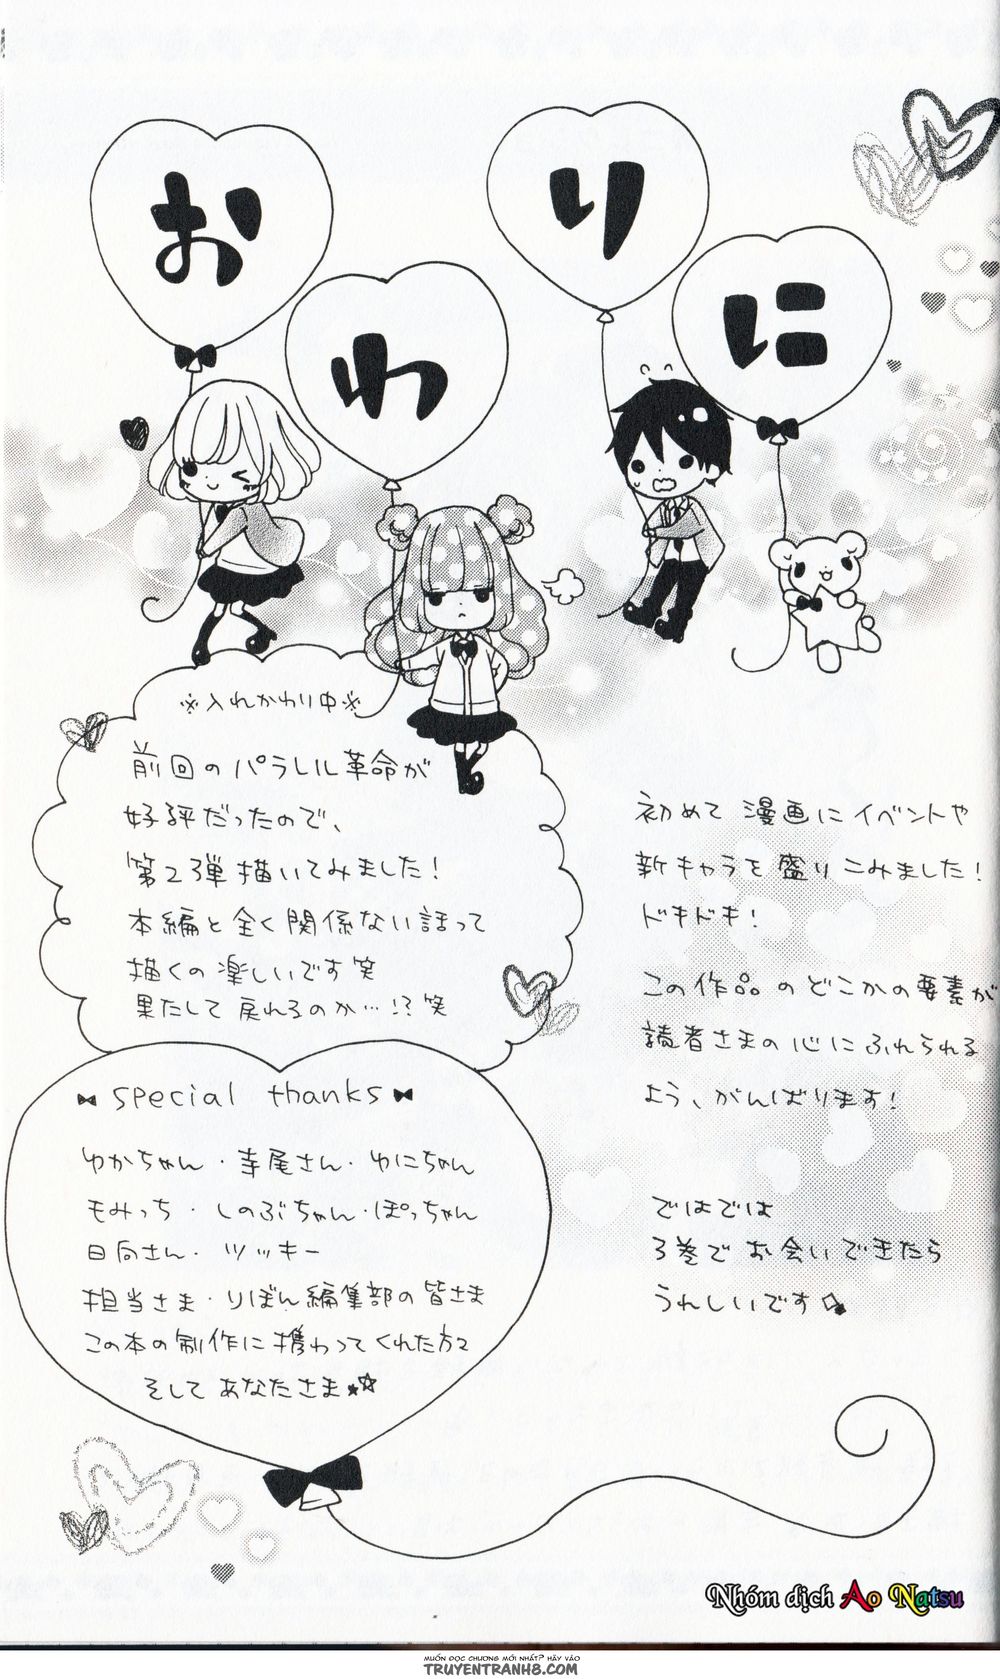 おわりに
※入れかわり中※
前回のパラレル革命が
好評だったので、
第2弾描いてみました！
本編と全く関係ない話って
描くの楽しいです笑
果たして戻れるのか…!?笑
初めて漫画にイベントや
新キャラを盛りこみました！
ドキドキ！
この作品のどこかの要素が
読者さまの心にふれられる
よう、がんばります！
ではでは
3巻でお会いできたら
うれしいです
special thanks
ゆかちゃん・寺尾さん・ゆにちゃん
もみっち・しのぶちゃん・ぽっちゃん
日向さん・ツッキー
担当さま・りぼん編集部の皆さま
この本の制作に携わってくれた方々
そしてあなたさま☆☆
Nhóm dịch Ao Natsu
MUỐN ĐỌC CHƯƠNG MỚI NHẤT? HÃY VÀO
TRUYENTRANH8.COM